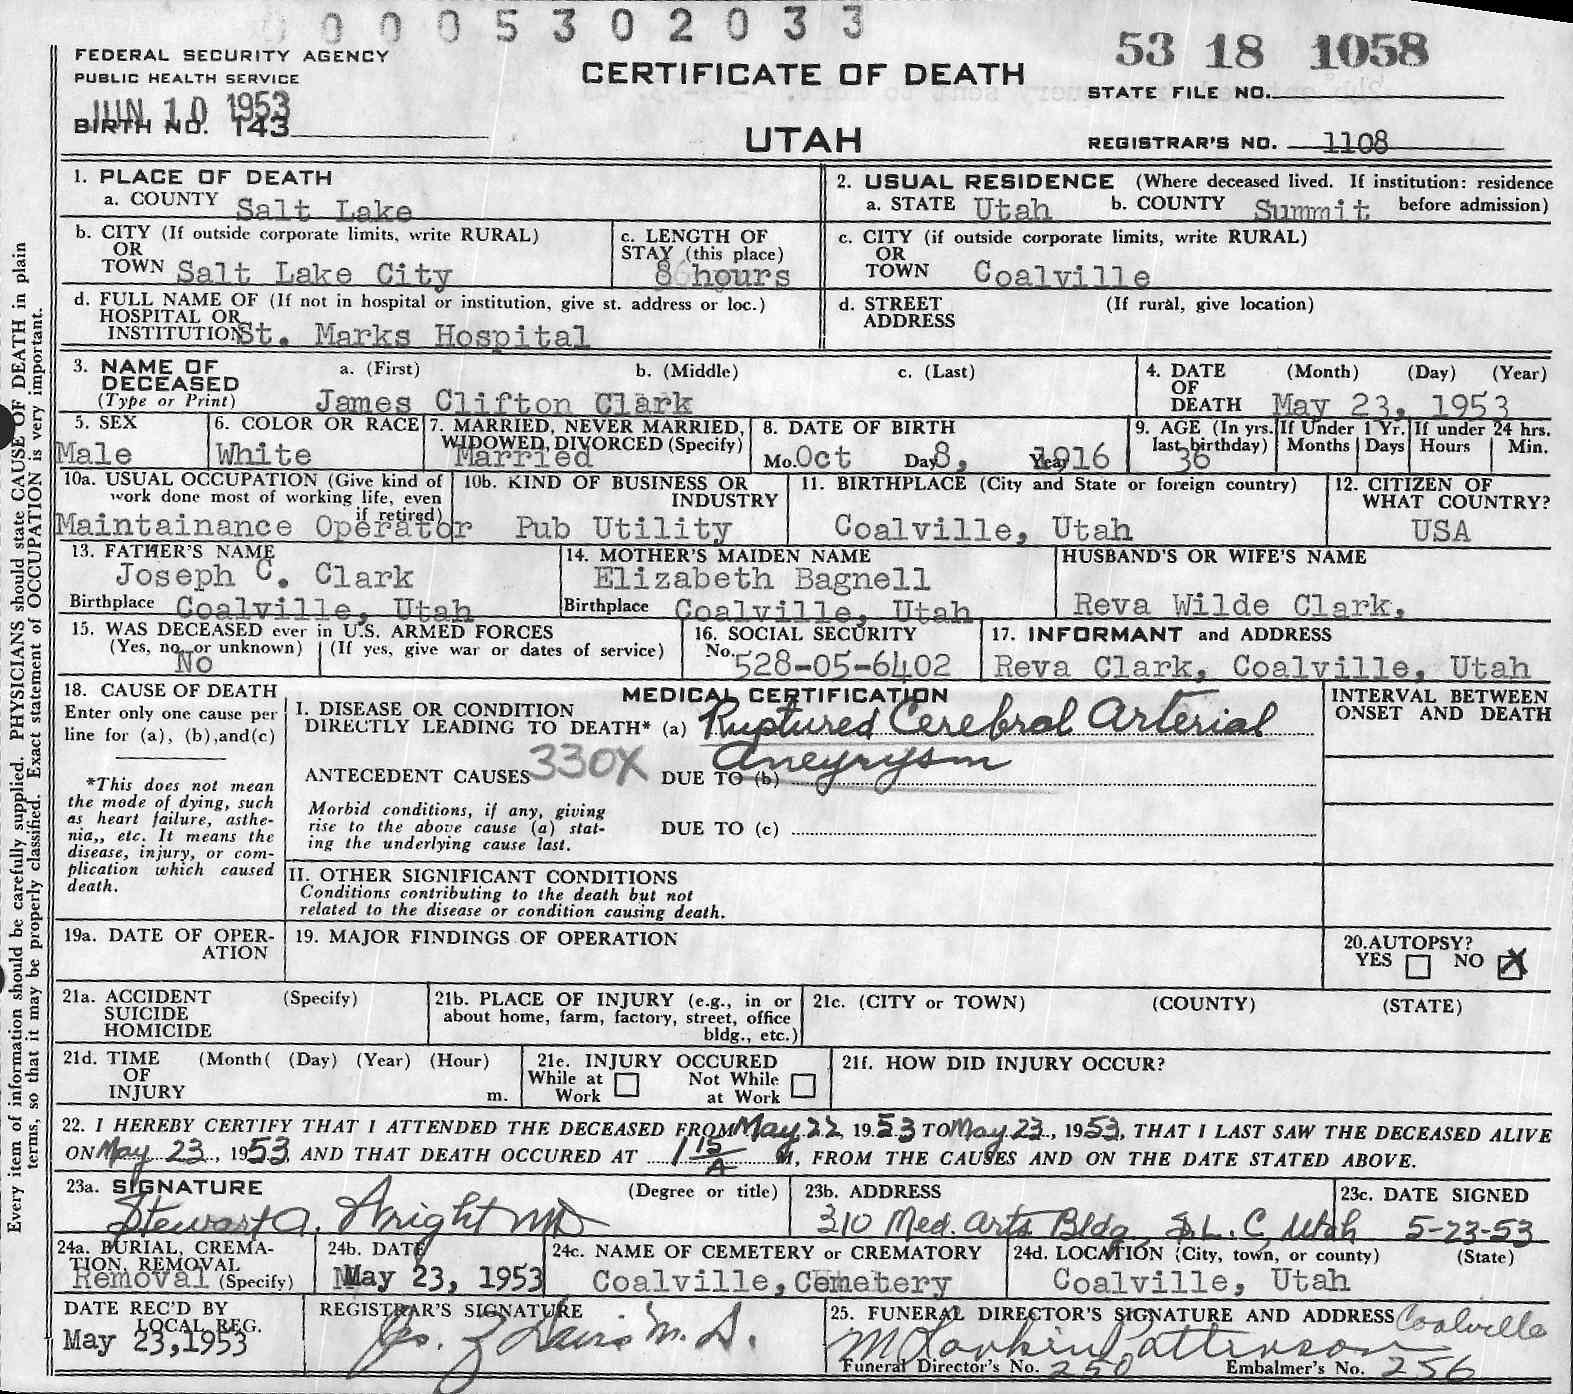 0005302033
FEDERAL SECURITY AGENCY
PUBLIC HEALTH SERVICE
JUN 10 1953
BIRTH NO. 143
CERTIFICATE OF DEATH
UTAH
53 18 1058
STATE FILE NO.
REGISTRAR'S NO. 1108
1. PLACE OF DEATH
a. COUNTY Salt Lake
2. USUAL RESIDENCE (Where deceased lived. If institution: residence
a. STATE Utah b. COUNTY Summit before admission)
b. CITY (If outside corporate limits, write RURAL)
OR
TOWN Salt Lake City
c. LENGTH OF
STAY (this place)
8 hours
c. CITY (if outside corporate limits, write RURAL)
OR
TOWN Coalville
d. FULL NAME OF (If not in hospital or institution, give st. address or loc.)
HOSPITAL OR
INSTITUTION St. Marks Hospital
d. STREET (If rural, give location)
ADDRESS
3. NAME OF a. (First) b. (Middle) c. (Last)
DECEASED
(Type or Print) James Clifton Clark
4. DATE (Month) (Day) (Year)
OF
DEATH May 23, 1953
5. SEX
Male
6. COLOR OR RACE
White
7. MARRIED, NEVER MARRIED,
WIDOWED, DIVORCED (Specify)
Married
8. DATE OF BIRTH
Mo. Oct Day 8, Year 1916
9. AGE (In yrs.
last birthday)
36
If Under 1 Yr.
Months Days
If under 24 hrs.
Hours Min.
10a. USUAL OCCUPATION (Give kind of
work done most of working life, even
if retired)
Maintainance Operator
10b. KIND OF BUSINESS OR
INDUSTRY
Pub Utility
11. BIRTHPLACE (City and State or foreign country)
Coalville, Utah
12. CITIZEN OF
WHAT COUNTRY?
USA
13. FATHER'S NAME
Joseph C. Clark
Birthplace Coalville, Utah
14. MOTHER'S MAIDEN NAME
Elizabeth Bagnell
Birthplace Coalville, Utah
HUSBAND'S OR WIFE'S NAME
Reva Wilde Clark,
15. WAS DECEASED ever in U.S. ARMED FORCES
(Yes, no, or unknown) (If yes, give war or dates of service)
No
16. SOCIAL SECURITY
No. 528-05-6402
17. INFORMANT and ADDRESS
Reva Clark, Coalville, Utah
18. CAUSE OF DEATH
Enter only one cause per
line for (a), (b),and(c)
*This does not mean
the mode of dying, such
as heart failure, asthe-
nia,, etc. It means the
disease, injury, or com-
plication which caused
death.
MEDICAL CERTIFICATION
I. DISEASE OR CONDITION
DIRECTLY LEADING TO DEATH* (a) Ruptured Cerebral Arterial
Aneyrysm
ANTECEDENT CAUSES 330X DUE TO (b)
Morbid conditions, if any, giving
rise to the above cause (a) stat-
ing the underlying cause last.
DUE TO (c)
INTERVAL BETWEEN
ONSET AND DEATH
II. OTHER SIGNIFICANT CONDITIONS
Conditions contributing to the death but not
related to the disease or condition causing death.
19a. DATE OF OPER-
ATION
19. MAJOR FINDINGS OF OPERATION
20. AUTOPSY?
YES NO X
21a. ACCIDENT (Specify)
SUICIDE
HOMICIDE
21b. PLACE OF INJURY (e.g., in or
about home, farm, factory, street, office
bldg., etc.)
21c. (CITY or TOWN) (COUNTY) (STATE)
21d. TIME (Month( (Day) (Year) (Hour)
OF
INJURY m.
21e. INJURY OCCURED
While at Not While
Work at Work
21f. HOW DID INJURY OCCUR?
22. I HEREBY CERTIFY THAT I ATTENDED THE DECEASED FROM May 22, 1953 TO May 23, 1953, THAT I LAST SAW THE DECEASED ALIVE
ON May 23, 1953 AND THAT DEATH OCCURED AT 1 15 A M, FROM THE CAUSES AND ON THE DATE STATED ABOVE.
23a. SIGNATURE (Degree or title)
Stewart A. Wright MD
23b. ADDRESS
310 Med. Arts Bldg, S.L.C, Utah
23c. DATE SIGNED
5-23-53
24a. BURIAL, CREMA-
TION, REMOVAL
Removal (Specify)
24b. DATE
May 23, 1953
24c. NAME OF CEMETERY or CREMATORY
Coalville, Cemetery
24d. LOCATION (City, town, or county) (State)
Coalville, Utah
DATE REC'D BY
LOCAL REG.
May 23,1953
REGISTRAR'S SIGNATURE
M. D.
25. FUNERAL DIRECTOR'S SIGNATURE AND ADDRESS Coalville
Funeral Director's No. 250 Embalmer's No. 256
Every item of information should be carefully supplied. PHYSICIANS should state CAUSE OF DEATH in plain
terms, so that it may be properly classified. Exact statement of OCCUPATION is very important.